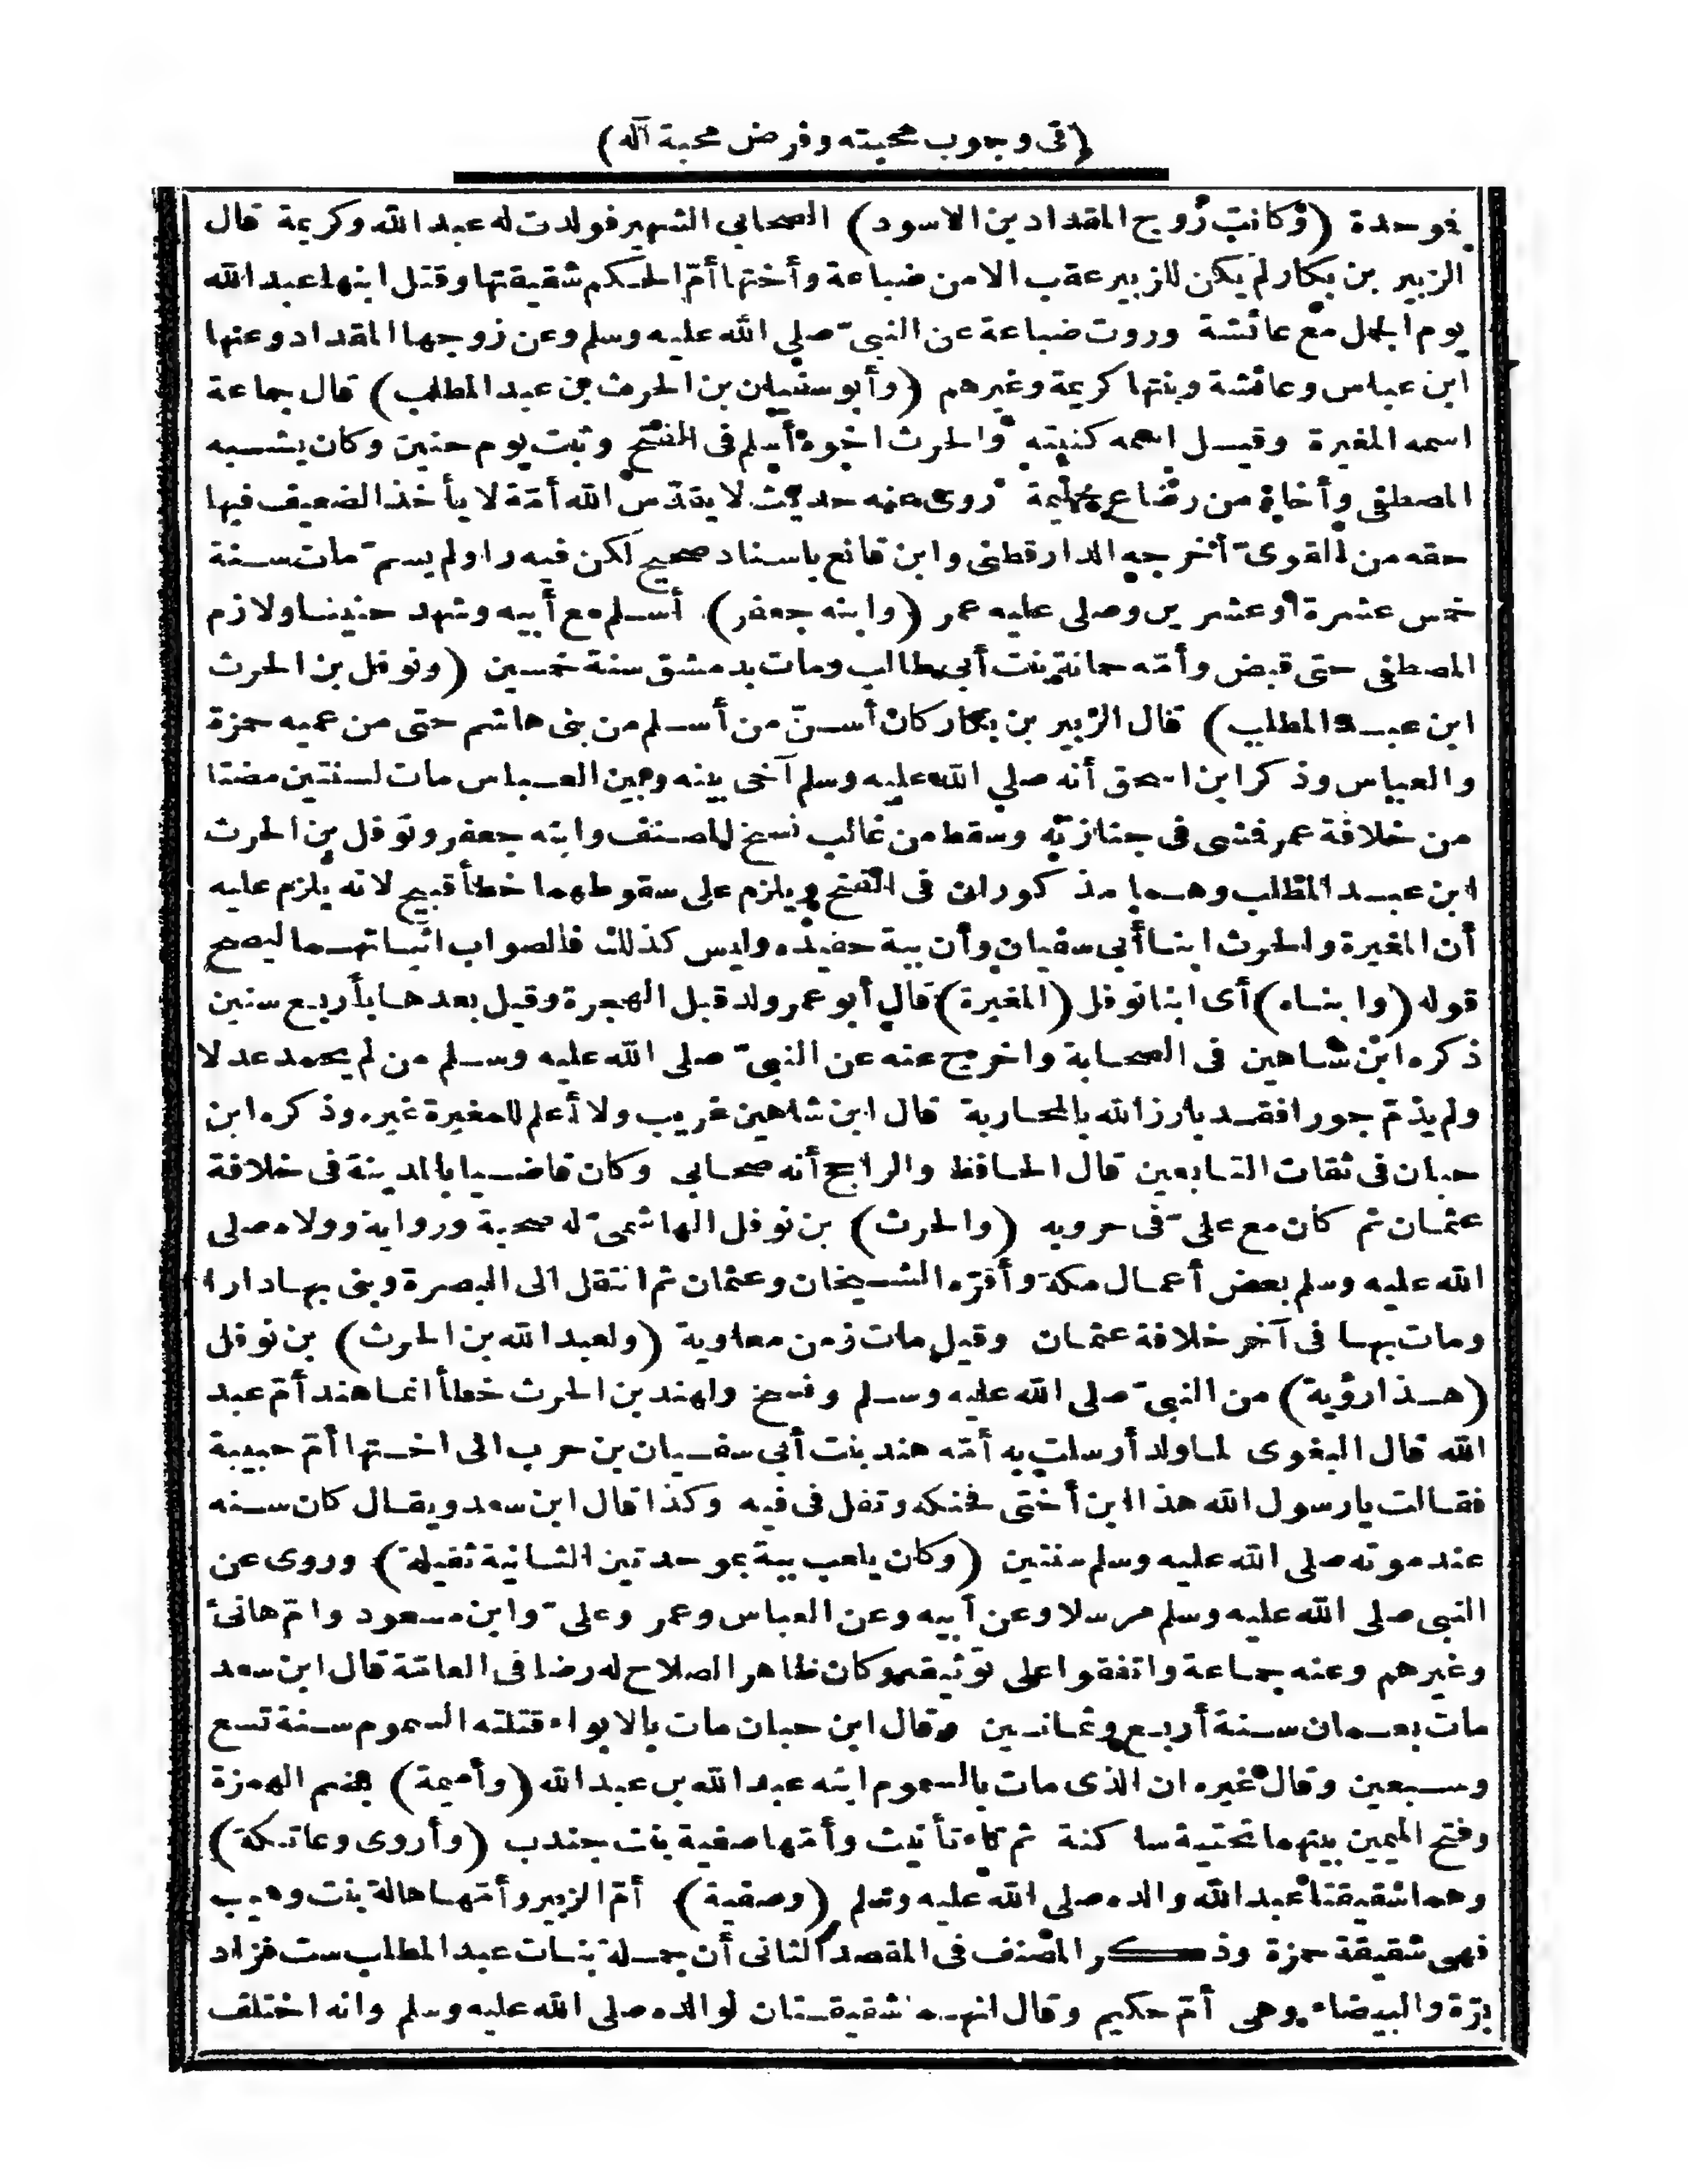 (فى وجوب محبته وفرض محبة آله)
فوحدة (وكانت زوج المقداد بن الاسود) الصحابى الشهير فولدت له عبد الله وكريمة قال
الزبير بن بكار لم يكن للزبير عقب الا من ضباعة وأختها أمّ الحكم شقيقتها وقتل ابنها عبد الله
يوم الجمل مع عائشة وروت ضباعة عن النبىّ صلى الله عليه وسلم وعن زوجها المقداد وعنها
ابن عباس وعائشة وبنتها كريمة وغيرهم (وأبو سفيان بن الحرث بن عبد المطلب) قال جماعة
اسمه المغيرة وقيل اسمه كنيته والحرث اخوه أسلم فى الفتح وثبت يوم حنين وكان يشبه
المصطفى وأخاه من رضاع حليمة روى عنه حديث لا يقدّس الله أمّة لا يأخذ الضعيف فيها
حقه من القوىّ أخرجه الدارقطنى وابن قانع باسناد صحيح لكن فيه راو لم يسمّ مات سنة
خمس عشرة أو عشرين وصلى عليه عمر (وابنه جعفر) أسلم مع أبيه وشهد حنينا ولازم
المصطفى حتى قبض وأمّه جمانة بنت أبى طالب ومات بدمشق سنة خمسين (ونوفل بن الحرث
ابن عبد المطلب) قال الزبير بن بكار كان أسنّ من أسلم من بنى هاشم حتى من عميه حمزة
والعباس وذكر ابن اسحق أنه صلى الله عليه وسلم آخى بينه وبين العباس مات لسنتين مضتا
من خلافة عمر فمشى فى جنازته وسقط من غالب نسخ المصنف وابنه جعفر ونوفل بن الحرث
ابن عبد المطلب وهما مذكوران فى الفتح ويلزم على سقوطهما خطأ قبيح لانه يلزم عليه
أن المغيرة والحرث ابنا أبى سفيان وأن ببة حفيده وليس كذلك فالصواب اثباتهما ليصح
قوله (وابناه) أى ابنا نوفل (المغيرة) قال أبو عمر ولد قبل الهجرة وقيل بعدها بأربع سنين
ذكره ابن شاهين فى الصحابة واخرج عنه عن النبىّ صلى الله عليه وسلم من لم يحمد عدلا
ولم يذمّ جورا فقد بارز الله بالمحاربة قال ابن شاهين غريب ولا أعلم للمغيرة غيره وذكره ابن
حبان فى ثقات التابعين قال الحافظ والراجح أنه صحابى وكان قاضيا بالمدينة فى خلافة
عثمان ثم كان مع علىّ فى حروبه (والحرث) بن نوفل الهاشمىّ له صحبة ورواية وولاه صلى
الله عليه وسلم بعض أعمال مكة وأقرّه الشيخان وعثمان ثم انتقل الى البصرة وبنى بها دارا
ومات بها فى آخر خلافة عثمان وقيل مات زمن معاوية (ولعبد الله بن الحرث) بن نوفل
(هذا رؤية) من النبىّ صلى الله عليه وسلم ونسخ ولهند بن الحرث خطأ انما هند أمّ عبد
الله قال البغوى لما ولد أرسلت به أمّه هند بنت أبى سفيان بن حرب الى اختها أمّ حبيبة
فقالت يا رسول الله هذا ابن أختى فحنكه وتفل فى فيه وكذا قال ابن سعد ويقال كان سنه
عند موته صلى الله عليه وسلم سنتين (وكان يلقب ببة بموحدتين الثانية ثقيلة) وروى عن
النبى صلى الله عليه وسلم مرسلا وعن أبيه وعن العباس وعمر وعلىّ وابن مسعود وامّ هانئ
وغيرهم وعنه جماعة واتفقوا على توثيقه وكان ظاهر الصلاح له رضا فى العامّة قال ابن سعد
مات بعمان سنة أربع وثمانين وقال ابن حبان مات بالابواء قتلته السموم سنة تسع
وسبعين وقال غيره ان الذى مات بالسموم ابنه عبد الله بن عبد الله (وأميمة) بضم الهمزة
وفتح الميمين بينهما تحتية ساكنة ثم تاء تأنيث وأمّها صفية بنت جندب (وأروى وعاتكة)
وهما شقيقتا عبد الله والده صلى الله عليه وسلم (وصفية) أمّ الزبير وأمّها هالة بنت وهيب
فهى شقيقة حمزة وذكر المصنف فى المقصد الثانى أن جملة بنات عبد المطلب ست فزاد
برّة والبيضاء وهى أمّ حكيم وقال انهما شقيقتان لوالده صلى الله عليه وسلم وانه اختلف